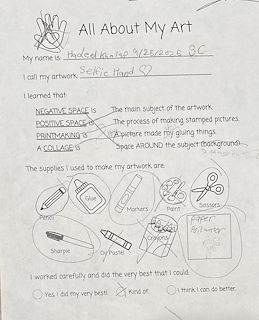 All About My Art
My name is Hadeel 9/25/2025 3C
I call my artwork Selfie Hand ♡
I learned that:
NEGATIVE SPACE is The main subject of the artwork.
POSITIVE SPACE is The process of making stamped pictures.
PRINTMAKING is A picture made my gluing things.
A COLLAGE is Space AROUND the subject (background)
The supplies I used to make my artwork are:
Pencil Glue Markers Paint Scissors
Sharpie Oil Pastel Crayons paper
I worked carefully and did the very best that I could.
Yes I did my very best! Kind of. I think I can do better.